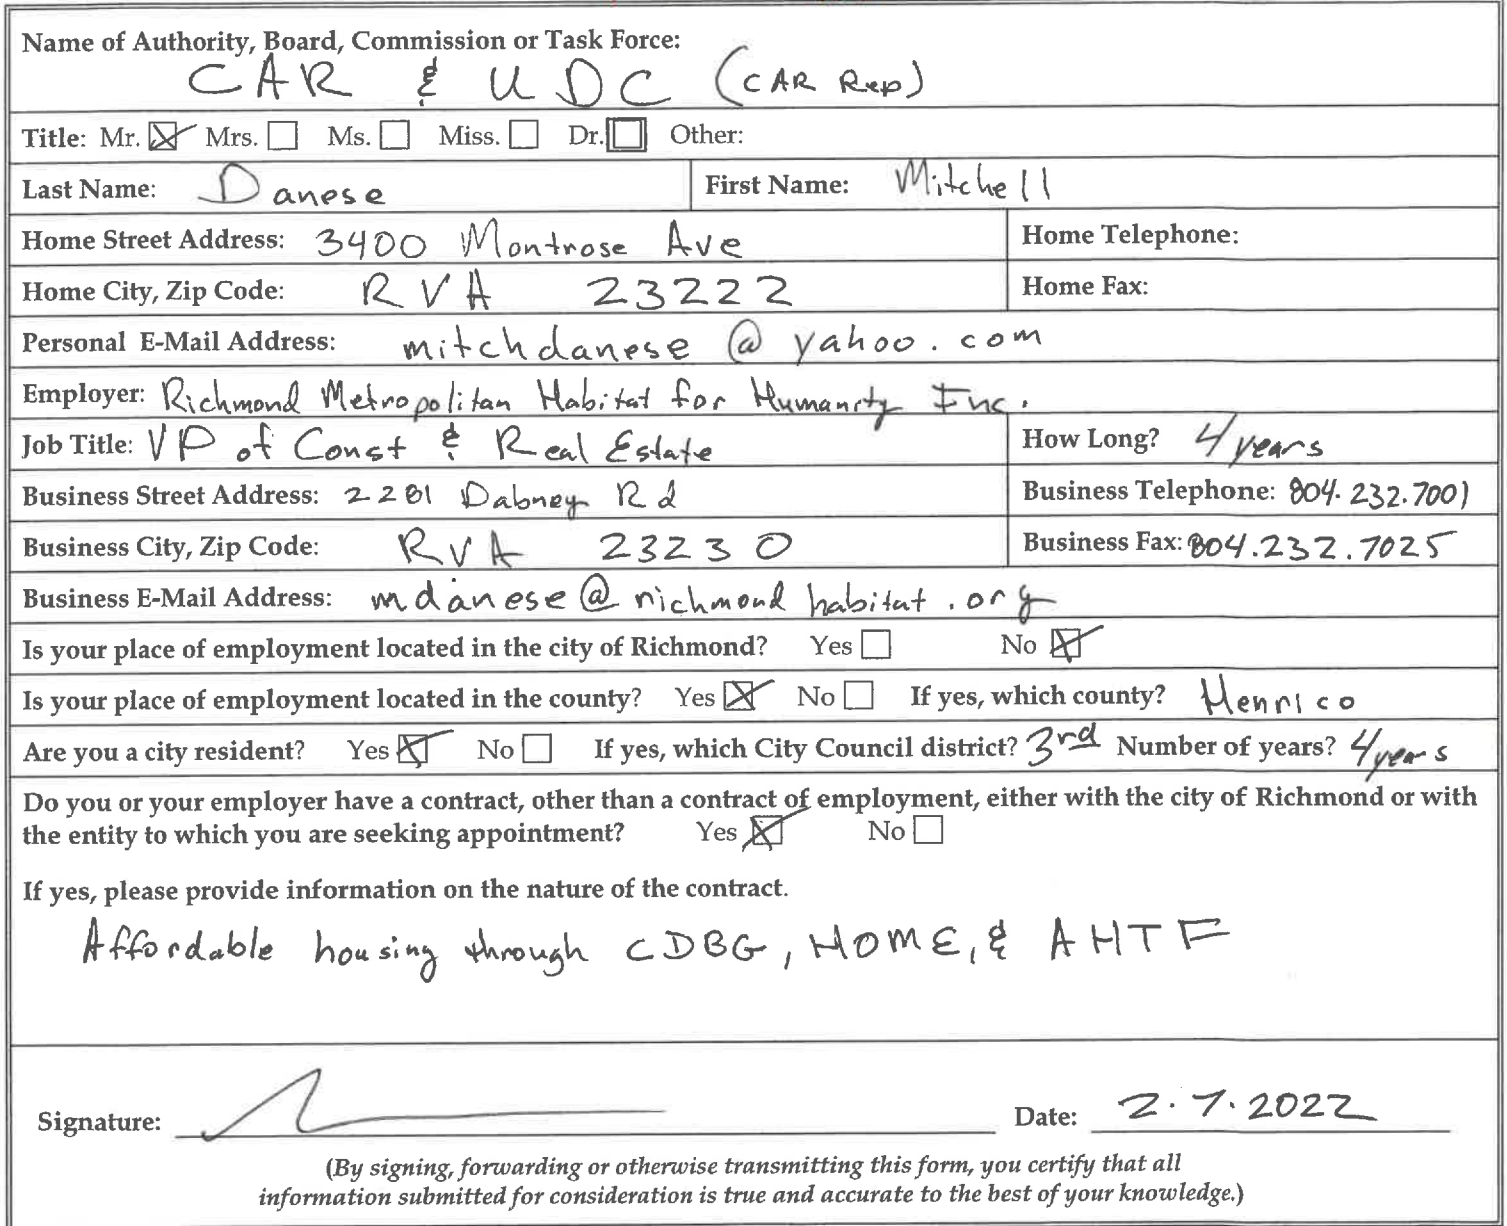 Name of Authority, Board, Commission or Task Force:
CAR & UDC (CAR Rep)
Title: Mr. ☒ Mrs. ☐ Ms. ☐ Miss. ☐ Dr. ☐ Other:
Last Name: Danese First Name: Mitchell
Home Street Address: 3400 Montrose Ave Home Telephone:
Home City, Zip Code: RVA 23222 Home Fax:
Personal E-Mail Address: mitchdanese @ yahoo.com
Employer: Richmond Metropolitan Habitat for Humanity Inc.
Job Title: VP of Const & Real Estate How Long? 4 years
Business Street Address: 2281 Dabney Rd Business Telephone: 804.232.7001
Business City, Zip Code: RVA 23230 Business Fax: 804.232.7025
Business E-Mail Address: mdanese@richmondhabitat.org
Is your place of employment located in the city of Richmond? Yes ☐ No ☒
Is your place of employment located in the county? Yes ☒ No ☐ If yes, which county? Henrico
Are you a city resident? Yes ☒ No ☐ If yes, which City Council district? 3rd Number of years? 4 years
Do you or your employer have a contract, other than a contract of employment, either with the city of Richmond or with
the entity to which you are seeking appointment? Yes ☒ No ☐
If yes, please provide information on the nature of the contract.
Affordable housing through CDBG, HOME, & AHTF
Signature: Date: 2.7.2022
(By signing, forwarding or otherwise transmitting this form, you certify that all
information submitted for consideration is true and accurate to the best of your knowledge.)